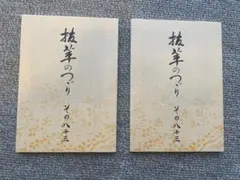 抜萃のつゞり
その八十三
抜萃のつゞり
その八十三